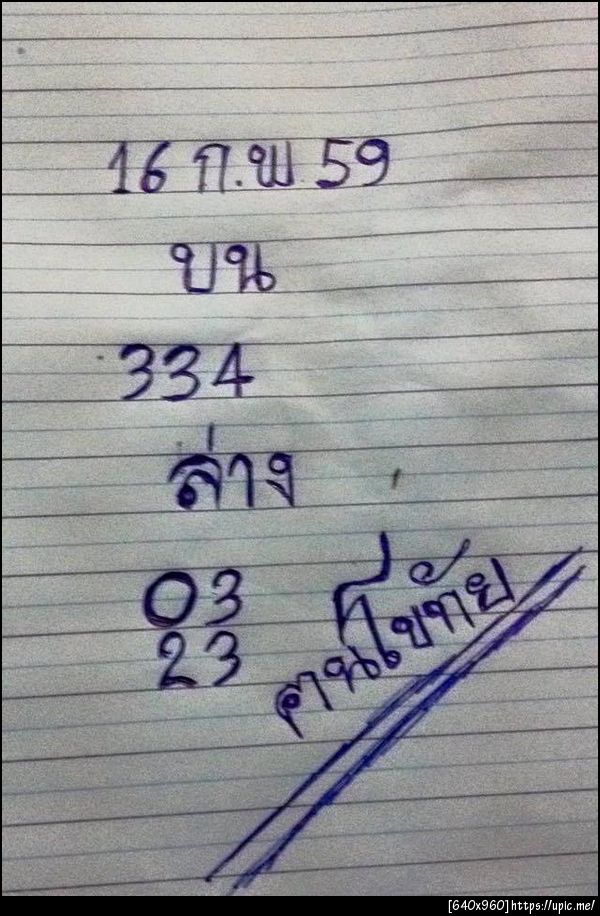 16 ก.พ 59
บน
334
ล่าง
03
23
[640x960]https://upic.me/